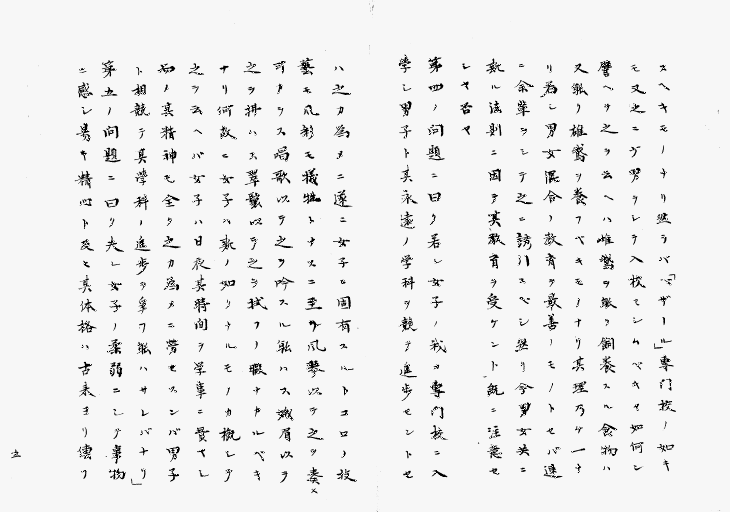 スヘキモノナリ然ラバ「バザール」専門校ノ如キ
モ又之ニヲ男ヲシテ入校セシムベキヤ如何シ
譬ヘヲ之ヲ云ヘハ雌鶯ヲ飼養スル食物ハ
又能ク雄鶯ヲ養フベキモノナリ其理乃ケ一ナ
リ若シ男女混合ノ教育ヲ最善ノモノトセバ速
ニ余輩ヲシテ之ニ誘引スベシ然リ今男女共ニ
此ノ法則ニ因テ其教育ヲ受ケント既ニ注意セ
シヤ否ヤ
第四ノ問題ニ曰ク若シ女子ノ我カ専門校ニ入
学シ男子ト其永遠ノ学科ヲ競テ進歩セントセ
ハ之カ為メニ遂ニ女子ニ固有スルトコロノ技
藝モ風彩モ犠牲トナスニ至ラン風琴以テ之ヲ奏ス
可カラス唱歌以テ之ヲ吟スル能ハス娥眉以テ
之ヲ掃ハス翠鬟以テ之ヲ拭フノ暇ナカルベキ
ナリ何故ニ女子ハ斯ノ如クナルモノカ概シテ
之ヲ云ヘバ女子ハ日夜其時間ヲ学事ニ費サレ
而メ其精神モ全ク之カ為メニ労セスンバ男子
ト相競テ其学科ノ進歩ヲ為ス能ハサレバナリ」
第五ノ問題ニ曰ク夫レ女子ノ柔弱ニシテ事物
ニ感シ易キ精心ト及ヒ其体格ハ古来ヨリ傳フ
五